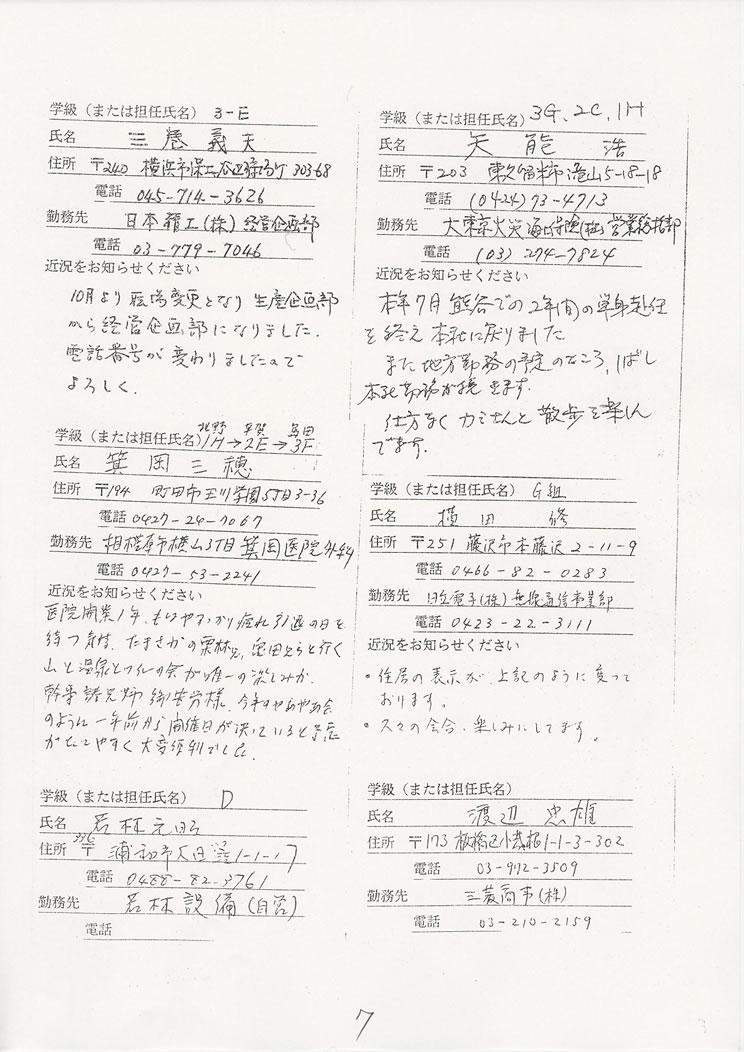 学級（または担任氏名） 3-E
氏名 三巻 義夫
住所 〒240 横浜市保土ヶ谷区 303-68
電話 045-714-3626
勤務先 日本精工(株) 経営企画部
電話 03-779-7046
近況をお知らせください
10月より職場変更となり 生産企画部
から経営企画部になりました.
電話番号が変わりましたので
よろしく.
北野 平賀 島田
学級（または担任氏名） 1H→2E→3F
氏名 箕岡 三穂
住所 〒194 町田市玉川学園5丁目3-36
電話 0427-24-7067
勤務先 相模原市横山3丁目 箕岡医院外科
電話 0427-53-2241
近況をお知らせください
医院開業1年、もはやすっかり疲れ引退の日を
待つ 。たまさかの栗林兄, 兄らと行く
山と温泉と の会が唯一の楽しみか.
幹事諸兄姉 御苦労様. 今年
のように一年前から開催日が決っていると予定
がたてやすく大変便利でした.
学級（または担任氏名） D
氏名 若林元昭
住所 〒336 浦和市太田窪1-1-17
電話 0488-82-3761
勤務先 若林設備(自営)
電話
学級（または担任氏名） 3G, 2C, 1H
氏名 矢能 浩
住所 〒203 東久留米市滝山5-18-18
電話 (0424) 73-4713
勤務先 大東京火災海上保険(株) 営業 部
電話 (03) 274-7824
近況をお知らせください
本年7月 熊谷での2年 の単身赴任
を終え 本社に戻りました
また地方勤務の予定のところ, しばし
本社勤務が続きます.
仕方なくカミさんと散歩を楽しん
でます.
学級（または担任氏名） G組
氏名 横田 修
住所 〒251 藤沢市本藤沢 2-11-9
電話 0466-82-0283
勤務先 日立電子(株) 無線通信事業部
電話 0423-22-3111
近況をお知らせください
・住居の表示が、上記のように変って
おります。
・久々の会合、楽しみにしてます。
学級（または担任氏名）
氏名 渡辺 忠雄
住所 〒173 板橋区小茂根1-1-3-302
電話 03-972-3509
勤務先 三菱商事(株)
電話 03-210-2159
7